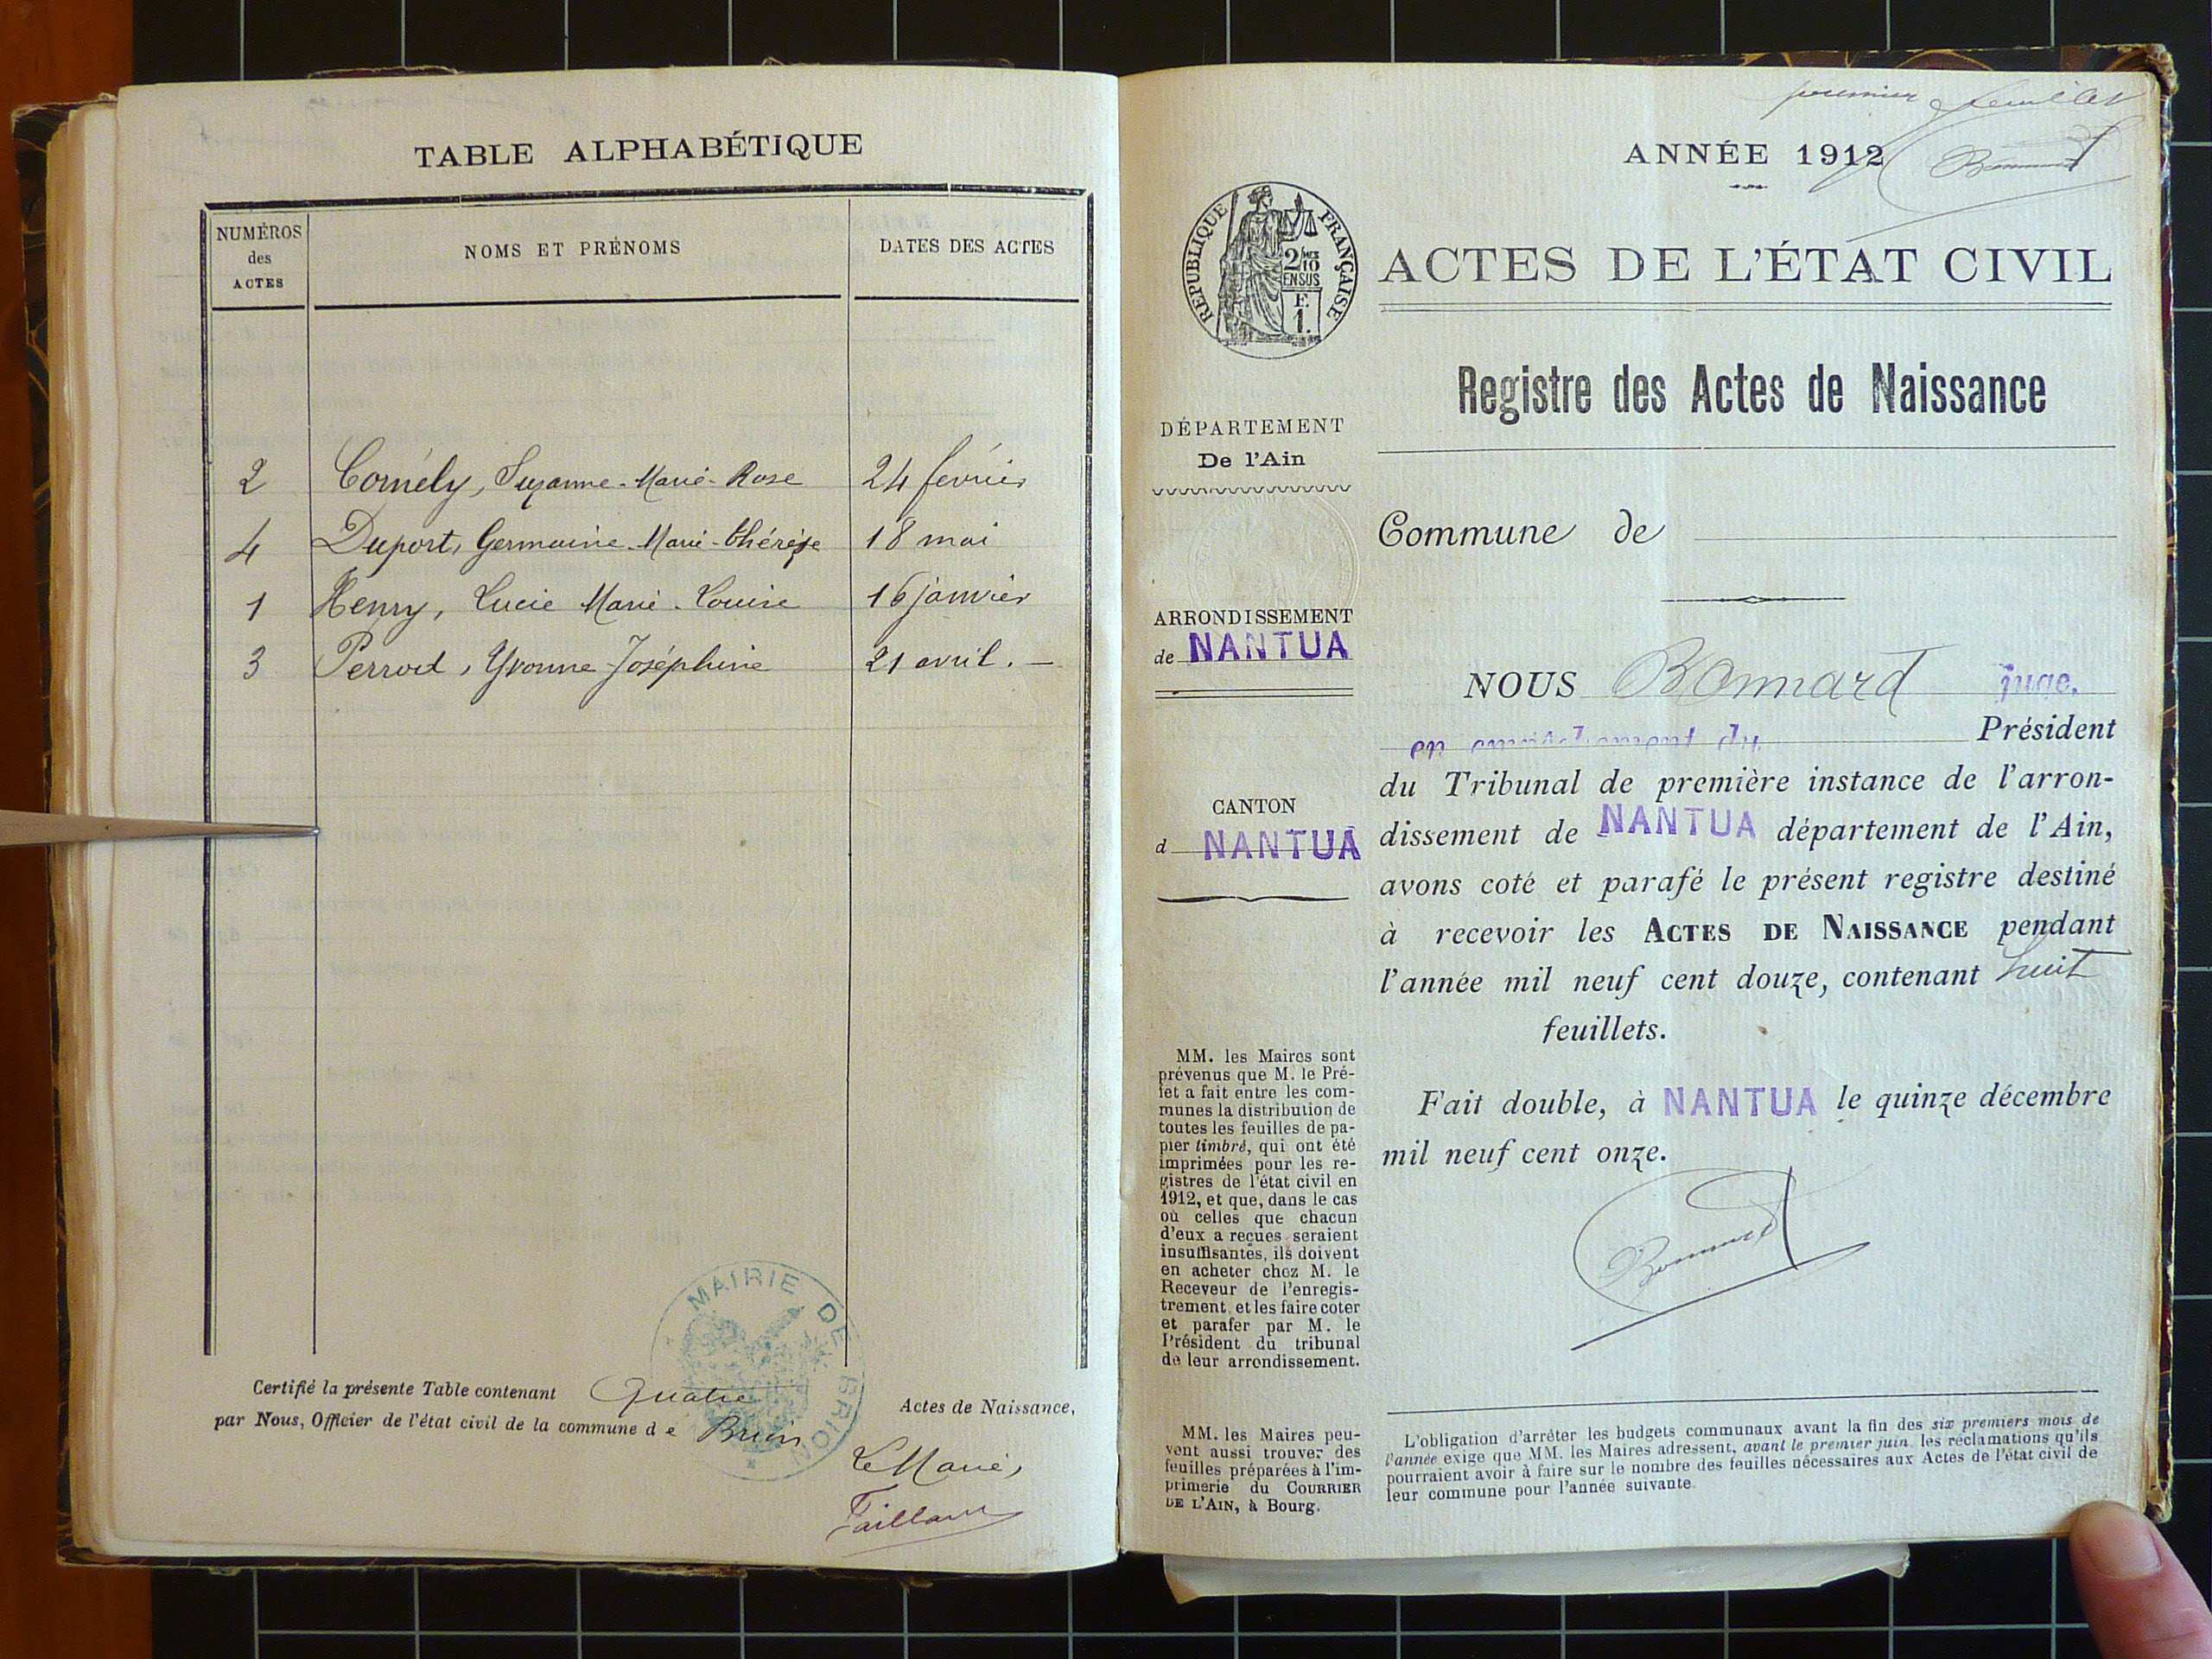 TABLE ALPHABÉTIQUE
NUMÉROS
des
ACTES
NOMS ET PRÉNOMS
DATES DES ACTES
2 Cornély, Suzanne-Marie-Rose 24 février
4 Duport, Germaine-Marie-Thérèse 18 mai
1 Henry, Lucie Marie-Louise 16 janvier
3 Yvonne Joséphine 21 avril. —
Certifié la présente Table contenant Quatre Actes de Naissance,
par Nous, Officier de l'état civil de la commune de Brion
MAIRIE DE BRION
Le Maire,
premier feuillet
ANNÉE 1912
Bonnard
RÉPUBLIQUE FRANÇAISE
2/10
EN SUS
F.
1.
ACTES DE L'ÉTAT CIVIL
Registre des Actes de Naissance
DÉPARTEMENT
De l'Ain
Commune de
ARRONDISSEMENT
de NANTUA
CANTON
d NANTUA
MM. les Maires sont
prévenus que M. le Pré-
fet a fait entre les com-
munes la distribution de
toutes les feuilles de pa-
pier timbré, qui ont été
imprimées pour les re-
gistres de l'état civil en
1912, et que, dans le cas
où celles que chacun
d'eux a reçues seraient
insuffisantes, ils doivent
en acheter chez M. le
Receveur de l'enregis-
trement, et les faire coter
et parafer par M. le
Président du tribunal
de leur arrondissement.
MM. les Maires peu-
vent aussi trouver des
feuilles préparées à l'im-
primerie du COURRIER
DE L'AIN, à Bourg.
NOUS Bonnard juge,
en empêchement du Président
du Tribunal de première instance de l'arron-
dissement de NANTUA département de l'Ain,
avons coté et parafé le présent registre destiné
à recevoir les ACTES DE NAISSANCE pendant
l'année mil neuf cent douze, contenant huit
feuillets.
Fait double, à NANTUA le quinze décembre
mil neuf cent onze.
Bonnard
L'obligation d'arrêter les budgets communaux avant la fin des six premiers mois de
l'année exige que MM. les Maires adressent, avant le premier juin, les réclamations qu'ils
pourraient avoir à faire sur le nombre des feuilles nécessaires aux Actes de l'état civil de
leur commune pour l'année suivante.